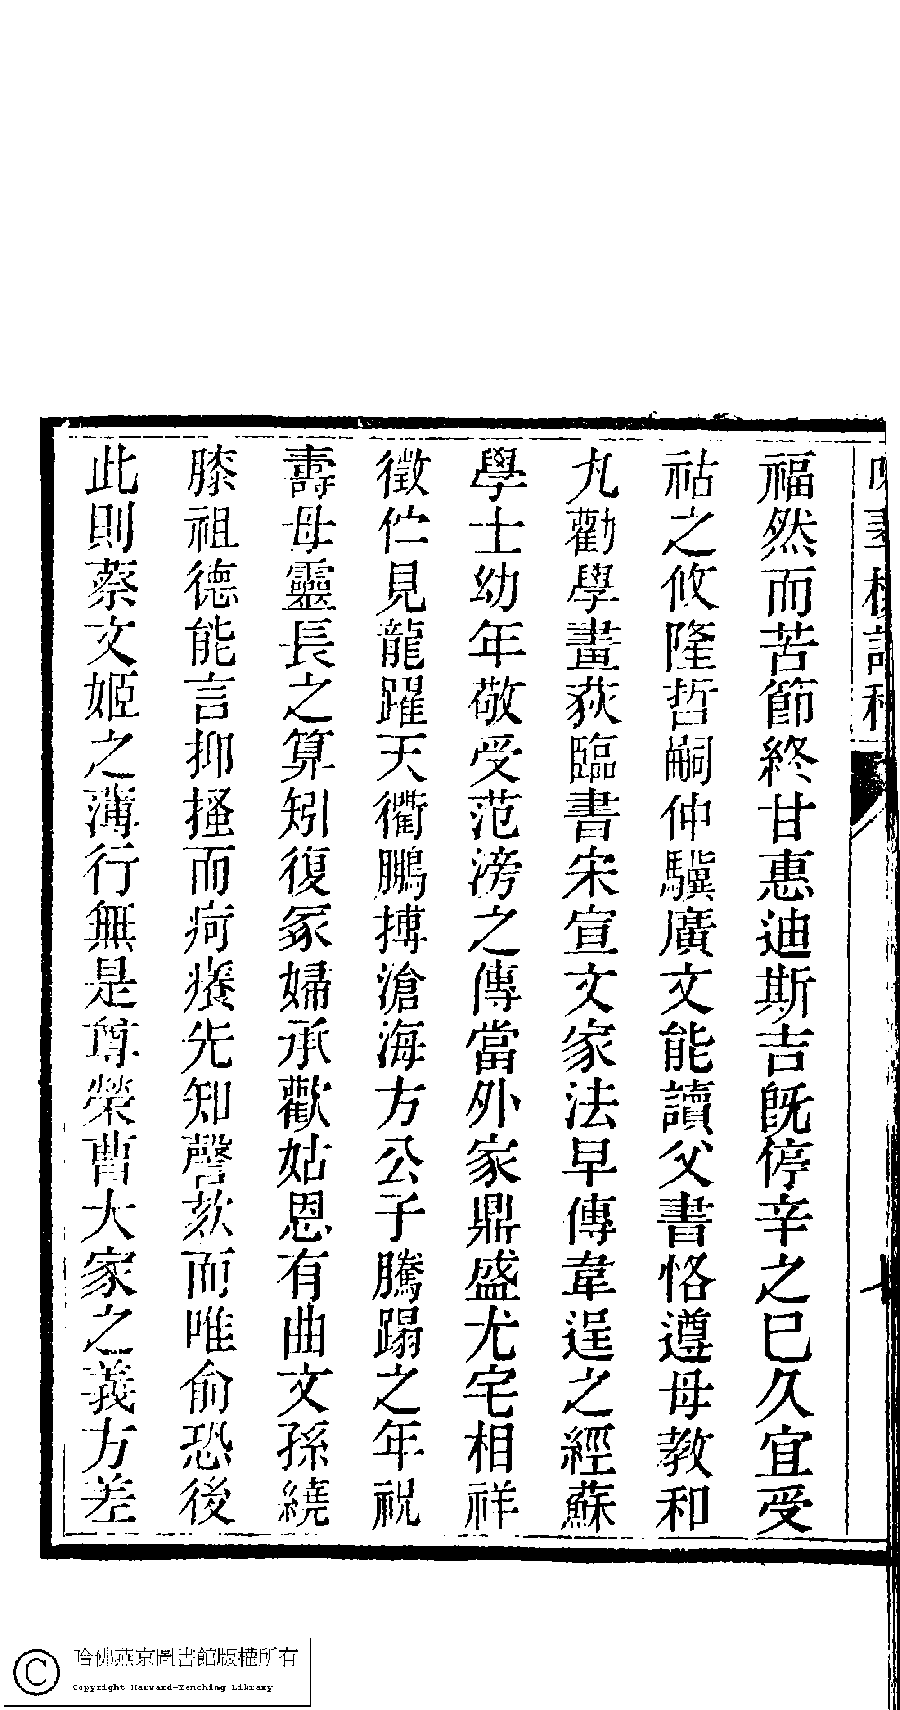 福然而苦節終甘惠迪斯吉既停辛之巳久宜受
祜之攸隆哲嗣仲驥廣文能讀父書恪遵母教和
丸勸學畫荻臨書宋宣文家法早傳韋逞之經蘇
學士幼年敬受范滂之傳當外家鼎盛尤宅相祥
徵伫見龍躍天衢鵬搏滄海方公子騰蹋之年祝
壽母靈長之算矧復冢婦承歡姑恩有曲文孫繞
膝祖德能言抑搔而疴癢先知謦欬而唯俞恐後
此則蔡文姬之薄行無是尊榮曹大家之義方差
哈佛燕京圖書館版權所有
Copyright Harvard-Yenching Library